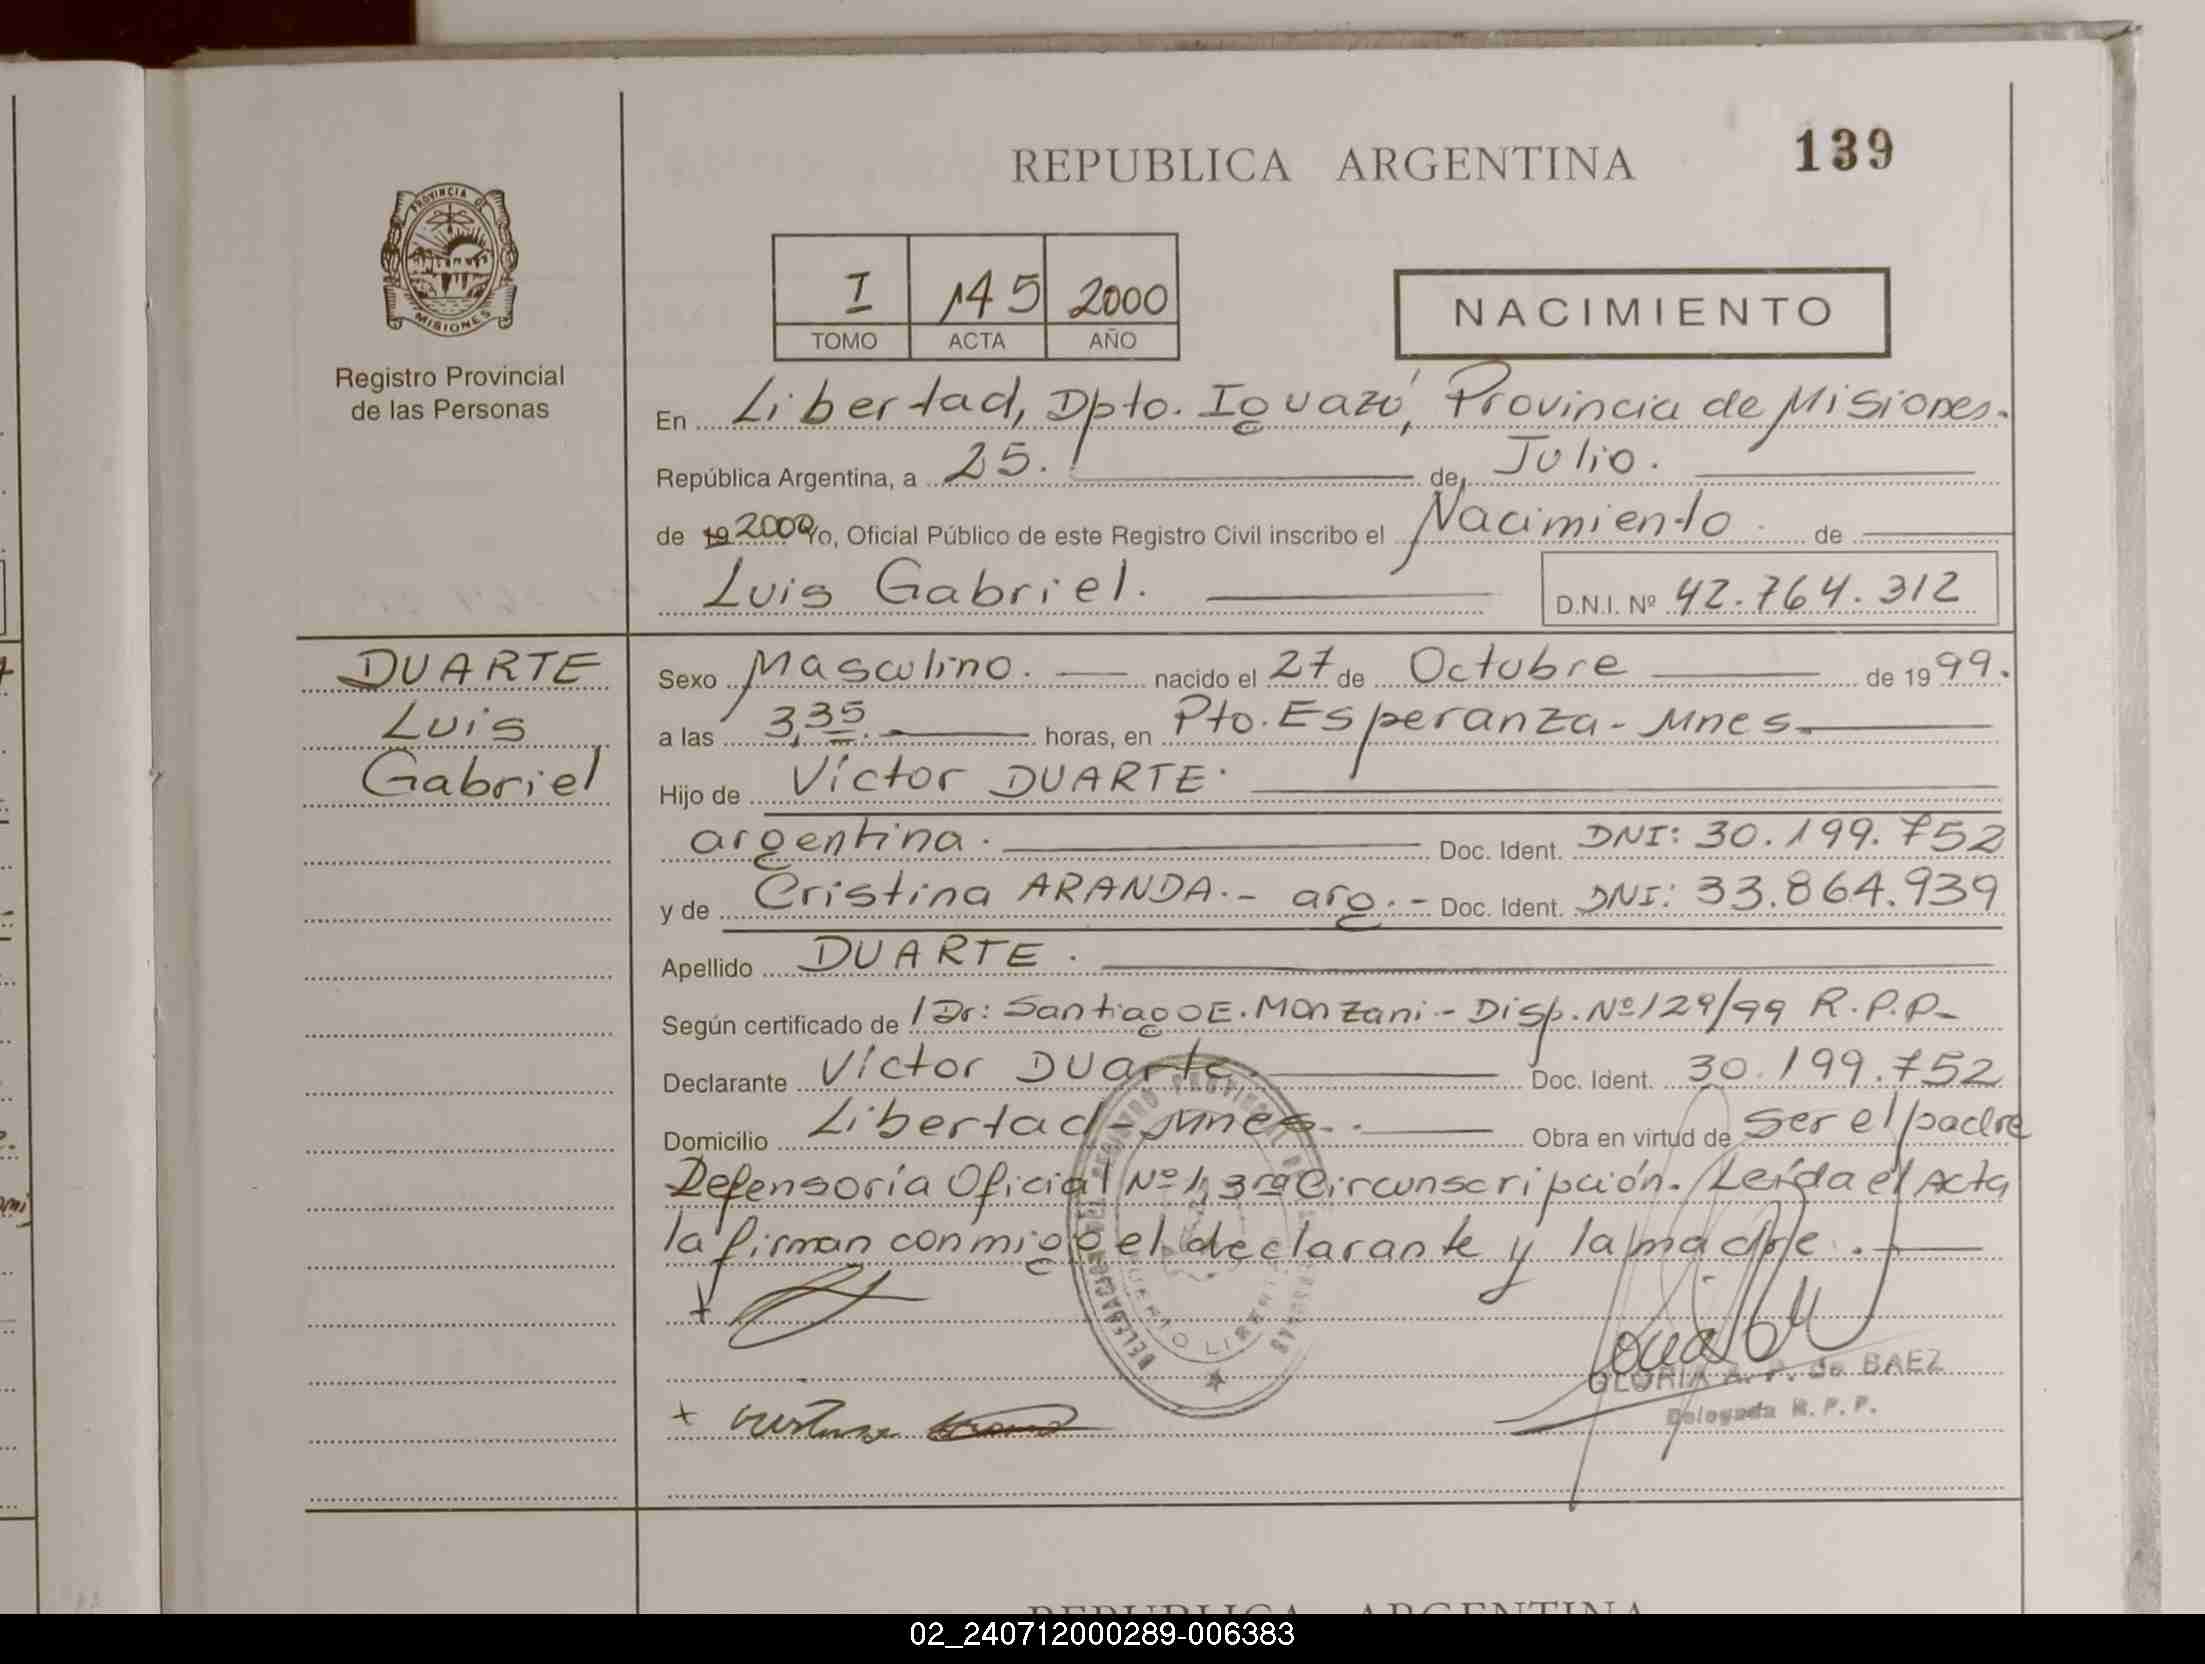 REPUBLICA ARGENTINA
139
PROVINCIA DE
MISIONES
Registro Provincial
de las Personas
I 145 2000
TOMO ACTA AÑO
NACIMIENTO
En Libertad, Dpto. Iguazú, Provincia de Misiones.
República Argentina, a 25. de Julio.
de 19 2000 Yo, Oficial Público de este Registro Civil inscribo el Nacimiento de
Luis Gabriel. D.N.I. Nº 42.764.312
DUARTE
Luis
Gabriel
Sexo Masculino. nacido el 27 de Octubre de 1999.
a las 3,35. horas, en Pto. Esperanza - Mnes.
Hijo de Víctor DUARTE.
argentina. Doc. Ident. DNI: 30.199.752
y de Cristina ARANDA.- arg.- Doc. Ident. DNI: 33.864.939
Apellido DUARTE.
Según certificado de / Dr: Santiago E. Monzani - Disp. Nº 129/99 R.P.P-
Declarante Víctor Duarte. Doc. Ident. 30.199.752
Domicilio Libertad - Mnes. Obra en virtud de ser el padre
Defensoría Oficial Nº 1, 3ra Circunscripción. Leída el Acta
la firman conmigo el declarante y la madre.
GLORIA A. P. de BAEZ
Delegada R. P. P.
REPUBLICA ARGENTINA
02_240712000289-006383